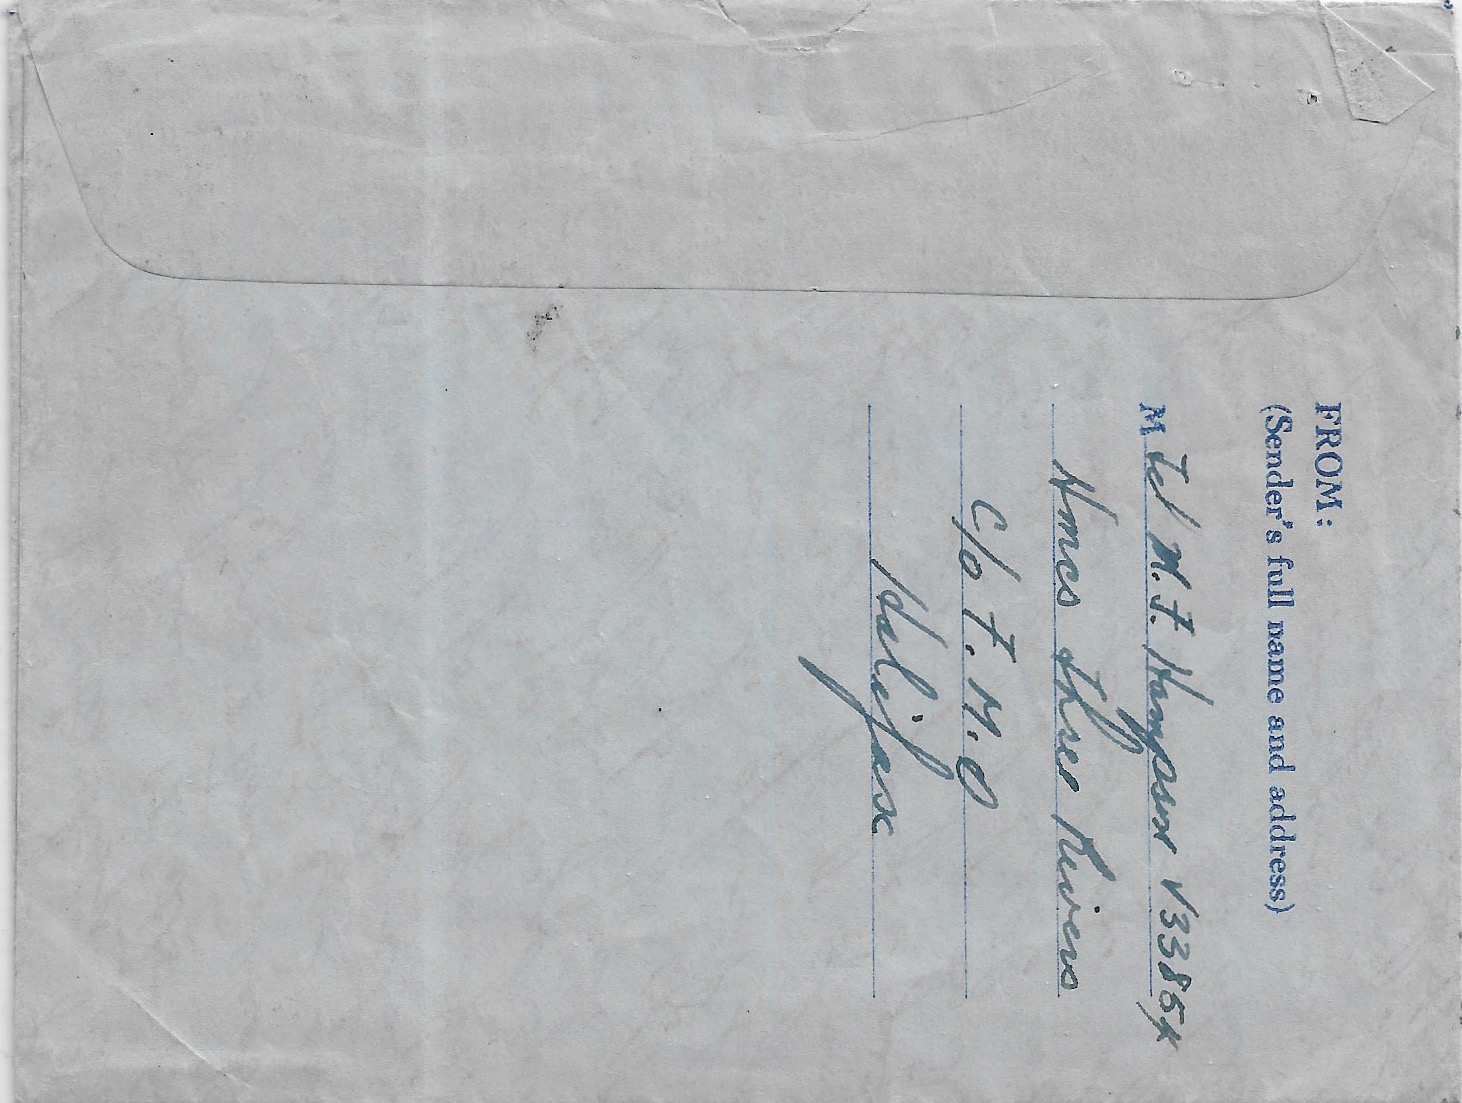 FROM:
(Sender's full name and address)
M Tel M. F. Hampson V33854
Hmcs Three Rivers
c/o F. M. O
Halifax